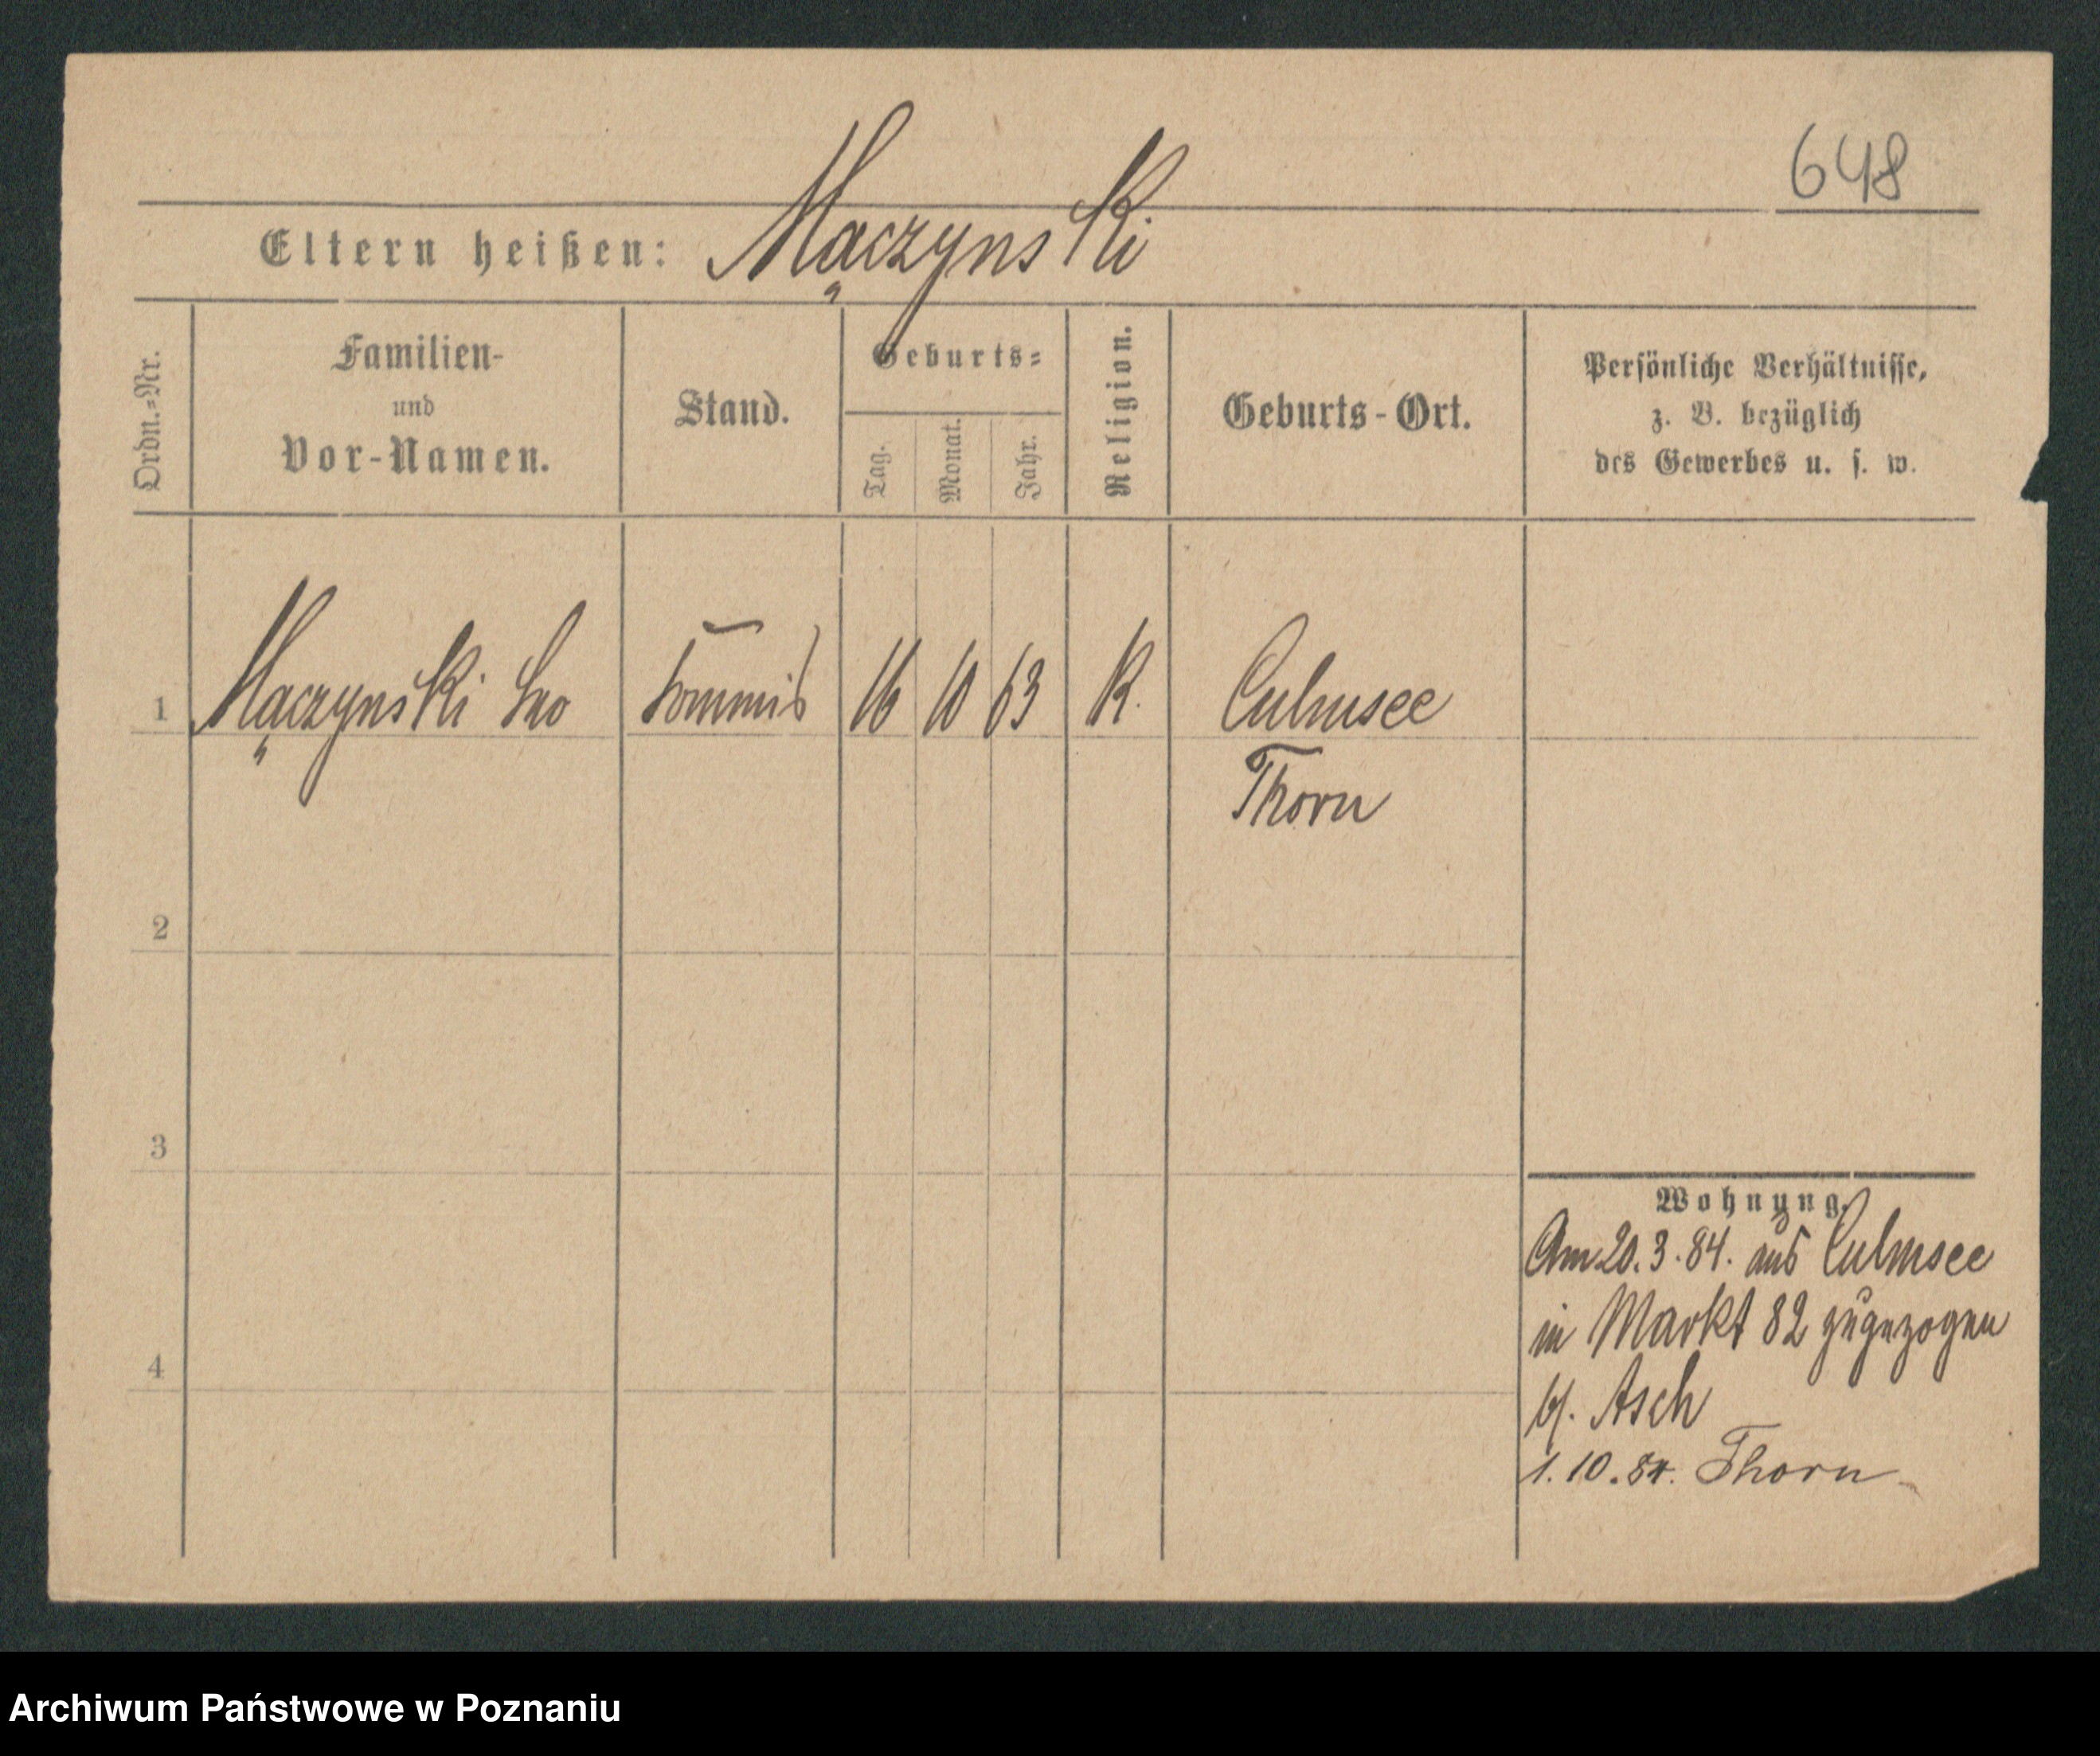 648
Eltern heißen: Mączynski
Ordn.=Nr.
Familien-
und
Vor-Namen.
Stand.
Geburts=
Tag.
Monat.
Jahr.
Religion.
Geburts-Ort.
Persönliche Verhältnisse,
z. B. bezüglich
des Gewerbes u. s. w.
1 Mączynski Leo Commis 16 10 63 K. Culmsee
Thorn
2
3
4
Wohnung.
Am 20.3.84. aus Culmsee
in Markt 82 zugezogen
b/. Asch
1.10.84. Thorn
Archiwum Państwowe w Poznaniu